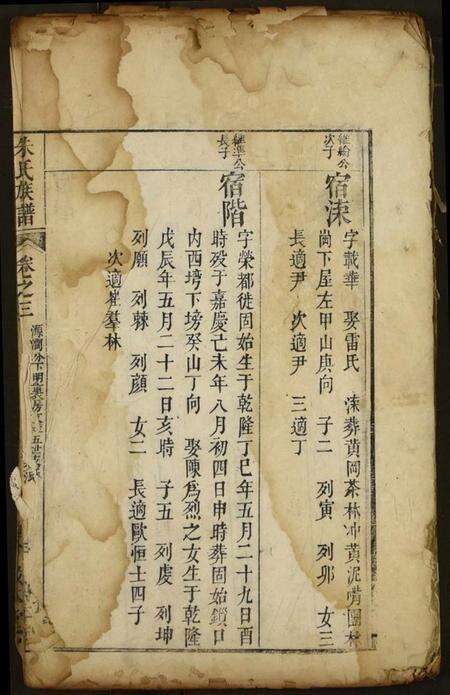 維綸公
次子
宿涑
字載華 娶雷氏 涑葬黃岡茶林冲黃泥嘴園林
崗下屋左甲山庚向 子二 列寅 列卯 女三
長適尹 次適尹 三適丁
維準公
長子
宿階
字榮都徒固始生于乾隆丁巳年五月二十九日酉
時殁于嘉慶己未年八月初四日申時葬固始鎖口
内西塆下塝癸山丁向 娶陳爲烈之女生于乾隆
戊辰年五月二十二日亥時 子五 列虔 列坤
列願 列棘 列顔 女二 長適歐恒士四子
次適崔羣林
朱氏族譜
卷之三